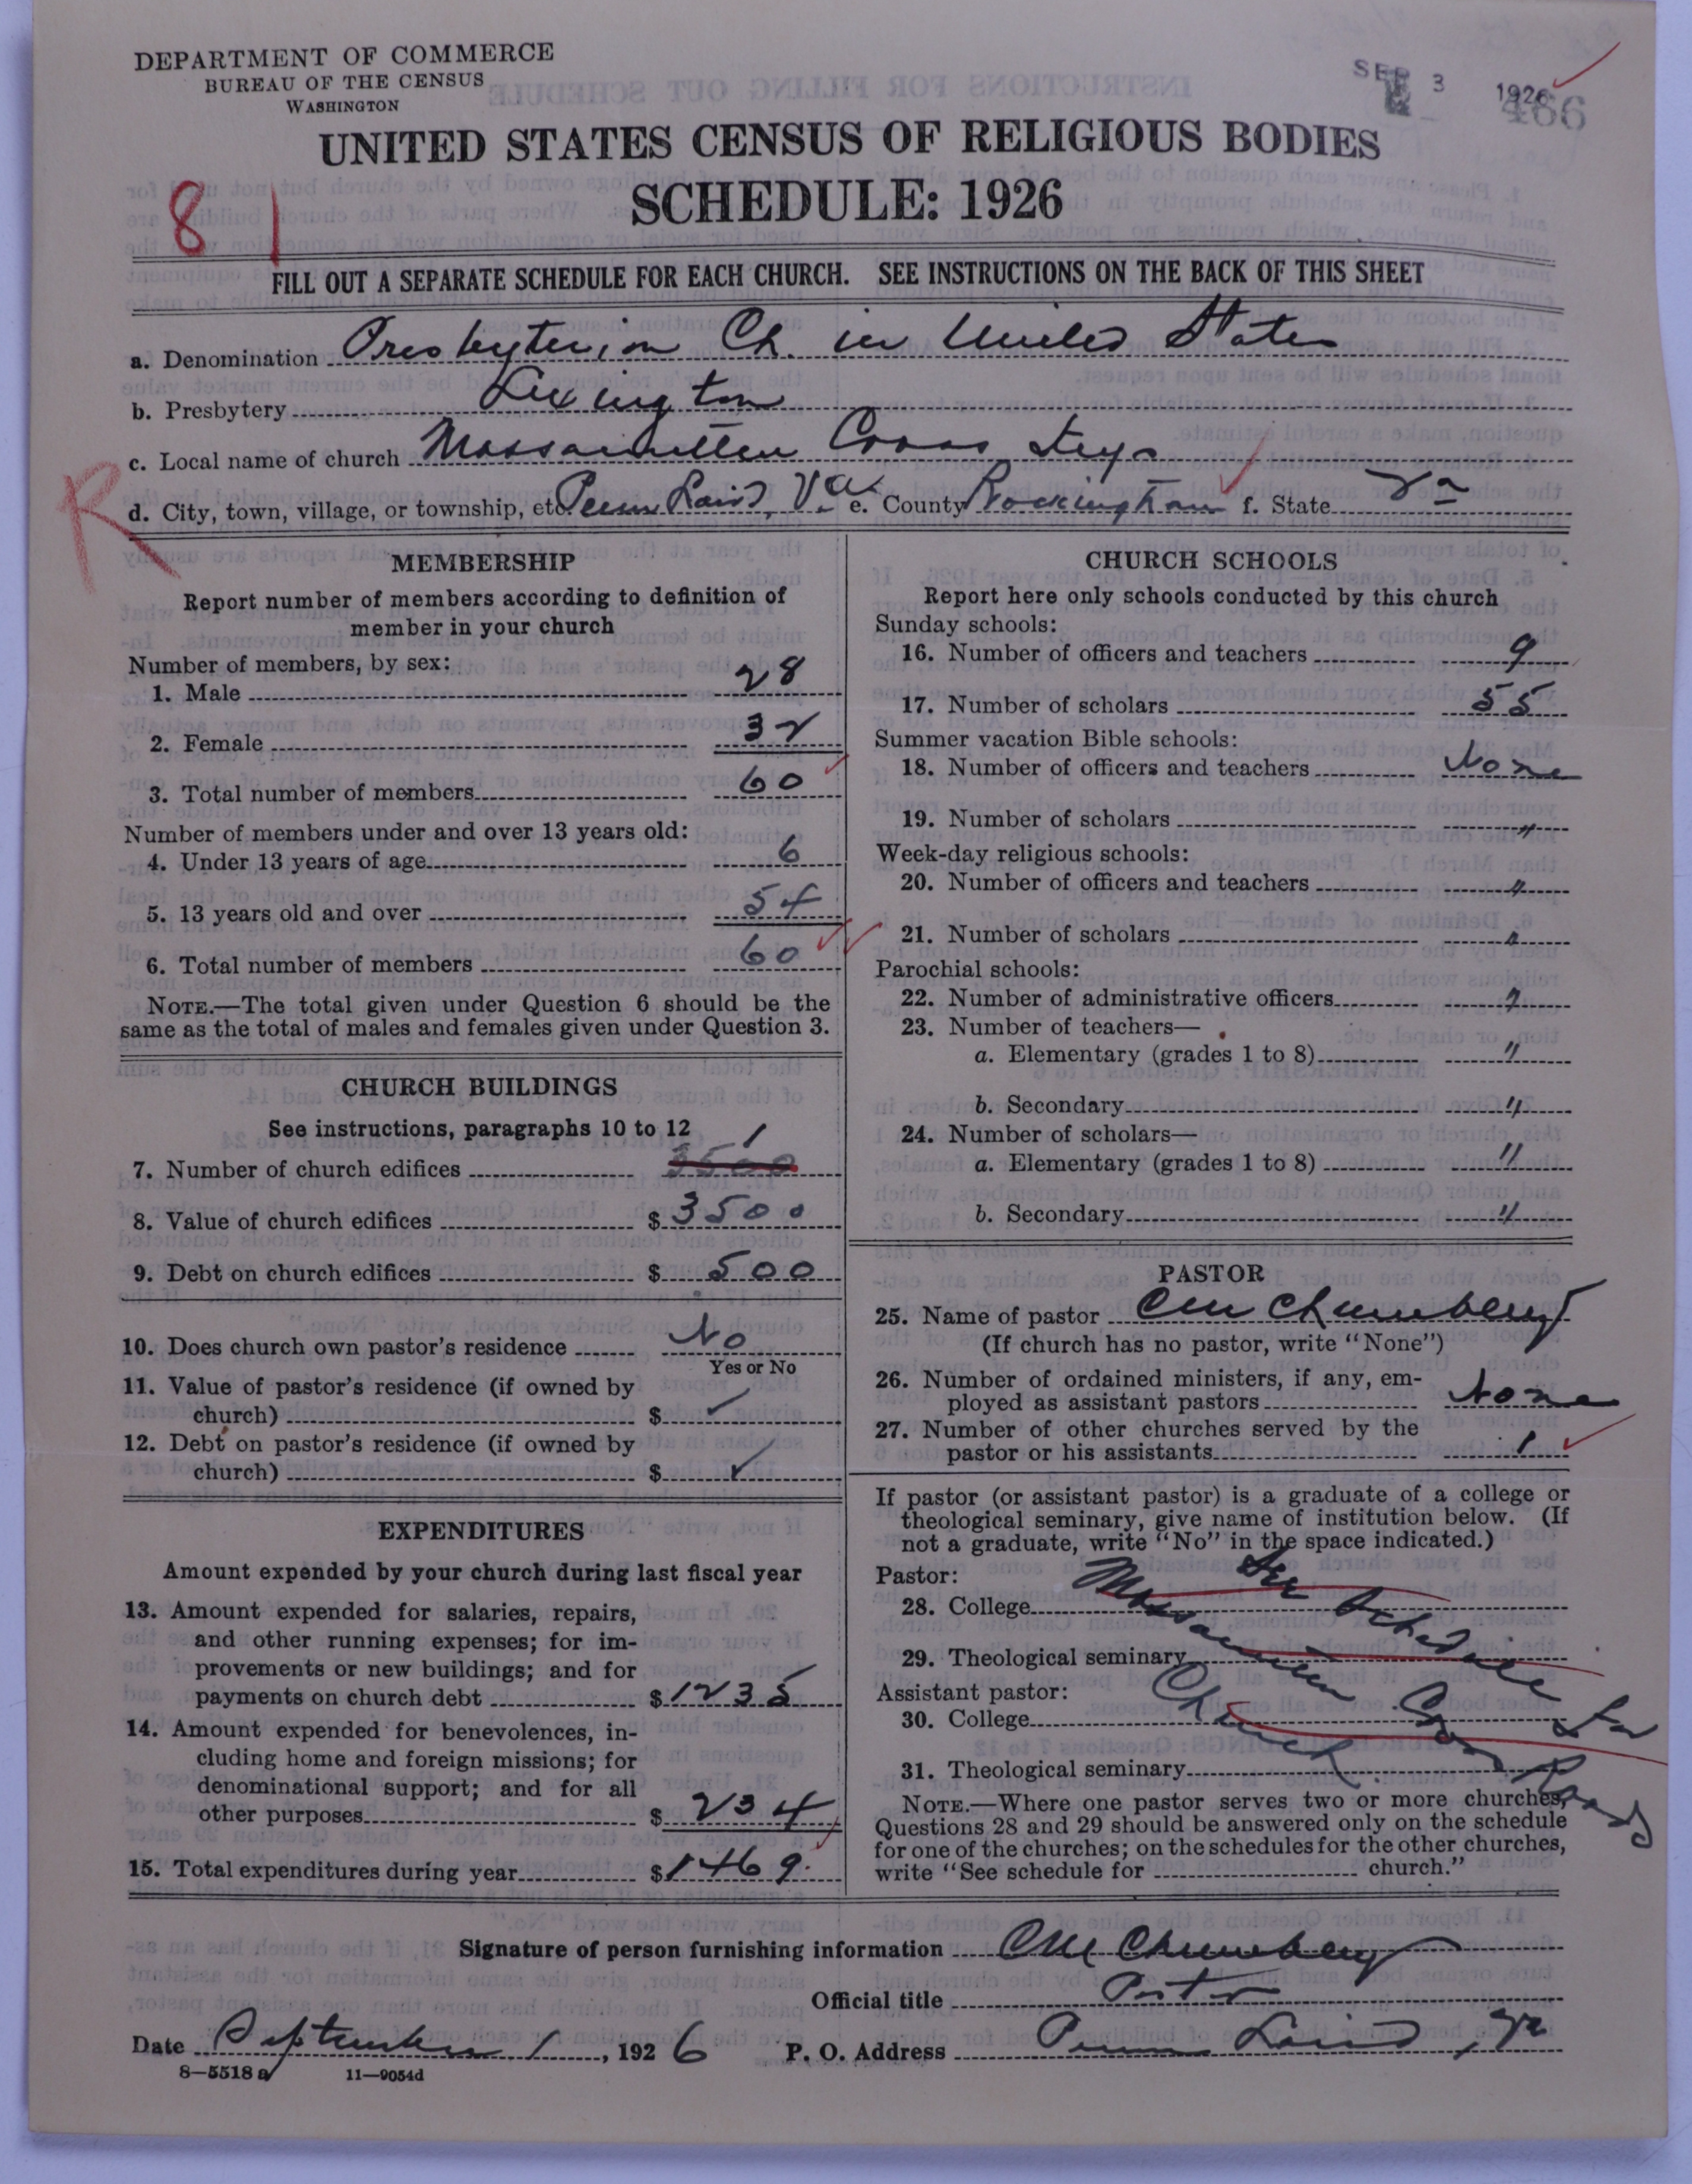 DEPARTMENT OF COMMERCE
BUREAU OF THE CENSUS
WASHINGTON
SEP 3 1926
466
UNITED STATES CENSUS OF RELIGIOUS BODIES
SCHEDULE: 1926
8 1
FILL OUT A SEPARATE SCHEDULE FOR EACH CHURCH. SEE INSTRUCTIONS ON THE BACK OF THIS SHEET
a. Denomination Presbyterian Ch. in United States
b. Presbytery Lexington
c. Local name of church Massanutten Cross Keys
R
d. City, town, village, or township, etc. Penn Laird, Va. e. County Rockingham f. State Va
MEMBERSHIP
Report number of members according to definition of
member in your church
Number of members, by sex:
1. Male 28
2. Female 32
3. Total number of members 60
Number of members under and over 13 years old:
4. Under 13 years of age 6
5. 13 years old and over 54
6. Total number of members 60
NOTE.—The total given under Question 6 should be the
same as the total of males and females given under Question 3.
CHURCH BUILDINGS
See instructions, paragraphs 10 to 12
1
7. Number of church edifices 3500
8. Value of church edifices $ 3500
9. Debt on church edifices $ 500
10. Does church own pastor's residence No
Yes or No
11. Value of pastor's residence (if owned by
church) $ ✓
12. Debt on pastor's residence (if owned by
church) $ ✓
EXPENDITURES
Amount expended by your church during last fiscal year
13. Amount expended for salaries, repairs,
and other running expenses; for im-
provements or new buildings; and for
payments on church debt $ 1235
14. Amount expended for benevolences, in-
cluding home and foreign missions; for
denominational support; and for all
other purposes $ 234
15. Total expenditures during year $ 1469.
CHURCH SCHOOLS
Report here only schools conducted by this church
Sunday schools:
16. Number of officers and teachers 9
17. Number of scholars 55
Summer vacation Bible schools:
18. Number of officers and teachers None
19. Number of scholars "
Week-day religious schools:
20. Number of officers and teachers "
21. Number of scholars "
Parochial schools:
22. Number of administrative officers "
23. Number of teachers—
a. Elementary (grades 1 to 8) "
b. Secondary "
24. Number of scholars—
a. Elementary (grades 1 to 8) "
b. Secondary "
PASTOR
25. Name of pastor
(If church has no pastor, write "None")
26. Number of ordained ministers, if any, em-
ployed as assistant pastors None
27. Number of other churches served by the
pastor or his assistants 1
If pastor (or assistant pastor) is a graduate of a college or
theological seminary, give name of institution below. (If
not a graduate, write "No" in the space indicated.)
Pastor:
28. College
29. Theological seminary
Assistant pastor:
30. College
31. Theological seminary
See Schedule for
Massanutten Cross Roads
Church.
NOTE.—Where one pastor serves two or more churches,
Questions 28 and 29 should be answered only on the schedule
for one of the churches; on the schedules for the other churches,
write "See schedule for church."
Signature of person furnishing information
Official title Pastor
Date September 1, 1926 P. O. Address Penn Laird, Va
8—5518 a 11—9054d